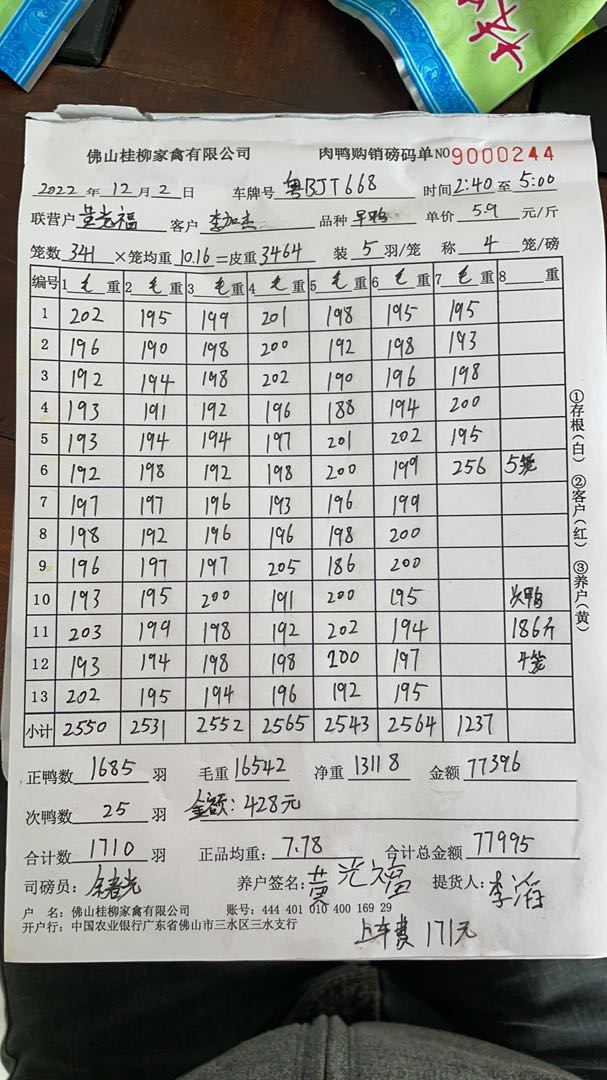 佛山桂柳家禽有限公司 肉鸭购销磅码单 NO 9000244
2022 年 12 月 2 日 车牌号 粤BJT668 时间 2:40 至 5:00
联营户 黄光福 客户 李加杰 品种 旱鸭 单价 5.9 元/斤
笼数 341 ×笼均重 10.16 =皮重 3464 装 5 羽/笼 称 4 笼/磅
编号 1 毛 重 2 毛 重 3 毛 重 4 毛 重 5 毛 重 6 毛 重 7 毛 重 8 重
1 202 195 199 201 198 195 195
2 196 190 198 200 192 198 193
3 192 194 198 202 190 196 198
4 193 191 192 196 188 194 200
5 193 194 194 197 201 202 195
6 192 198 192 198 200 199 256 5笼
7 197 197 196 193 196 199
8 198 192 196 196 198 200
9 196 197 197 205 186 200
10 193 195 200 191 200 195 次鸭
11 203 199 198 192 202 194 186斤
12 193 194 198 198 200 197 4笼
13 202 195 194 196 192 195
小计 2550 2531 2552 2565 2543 2564 1237
正鸭数 1685 羽 毛重 16542 净重 13118 金额 77396
次鸭数 25 羽 金额：428元
合计数 1710 羽 正品均重： 7.78 合计总金额 77995
司磅员： 养户签名： 黄光福 提货人： 李
户 名：佛山桂柳家禽有限公司 账号：444 401 010 400 169 29
开户行：中国农业银行广东省佛山市三水区三水支行
上车费 171元
①存根(白) ②客户(红) ③养户(黄)